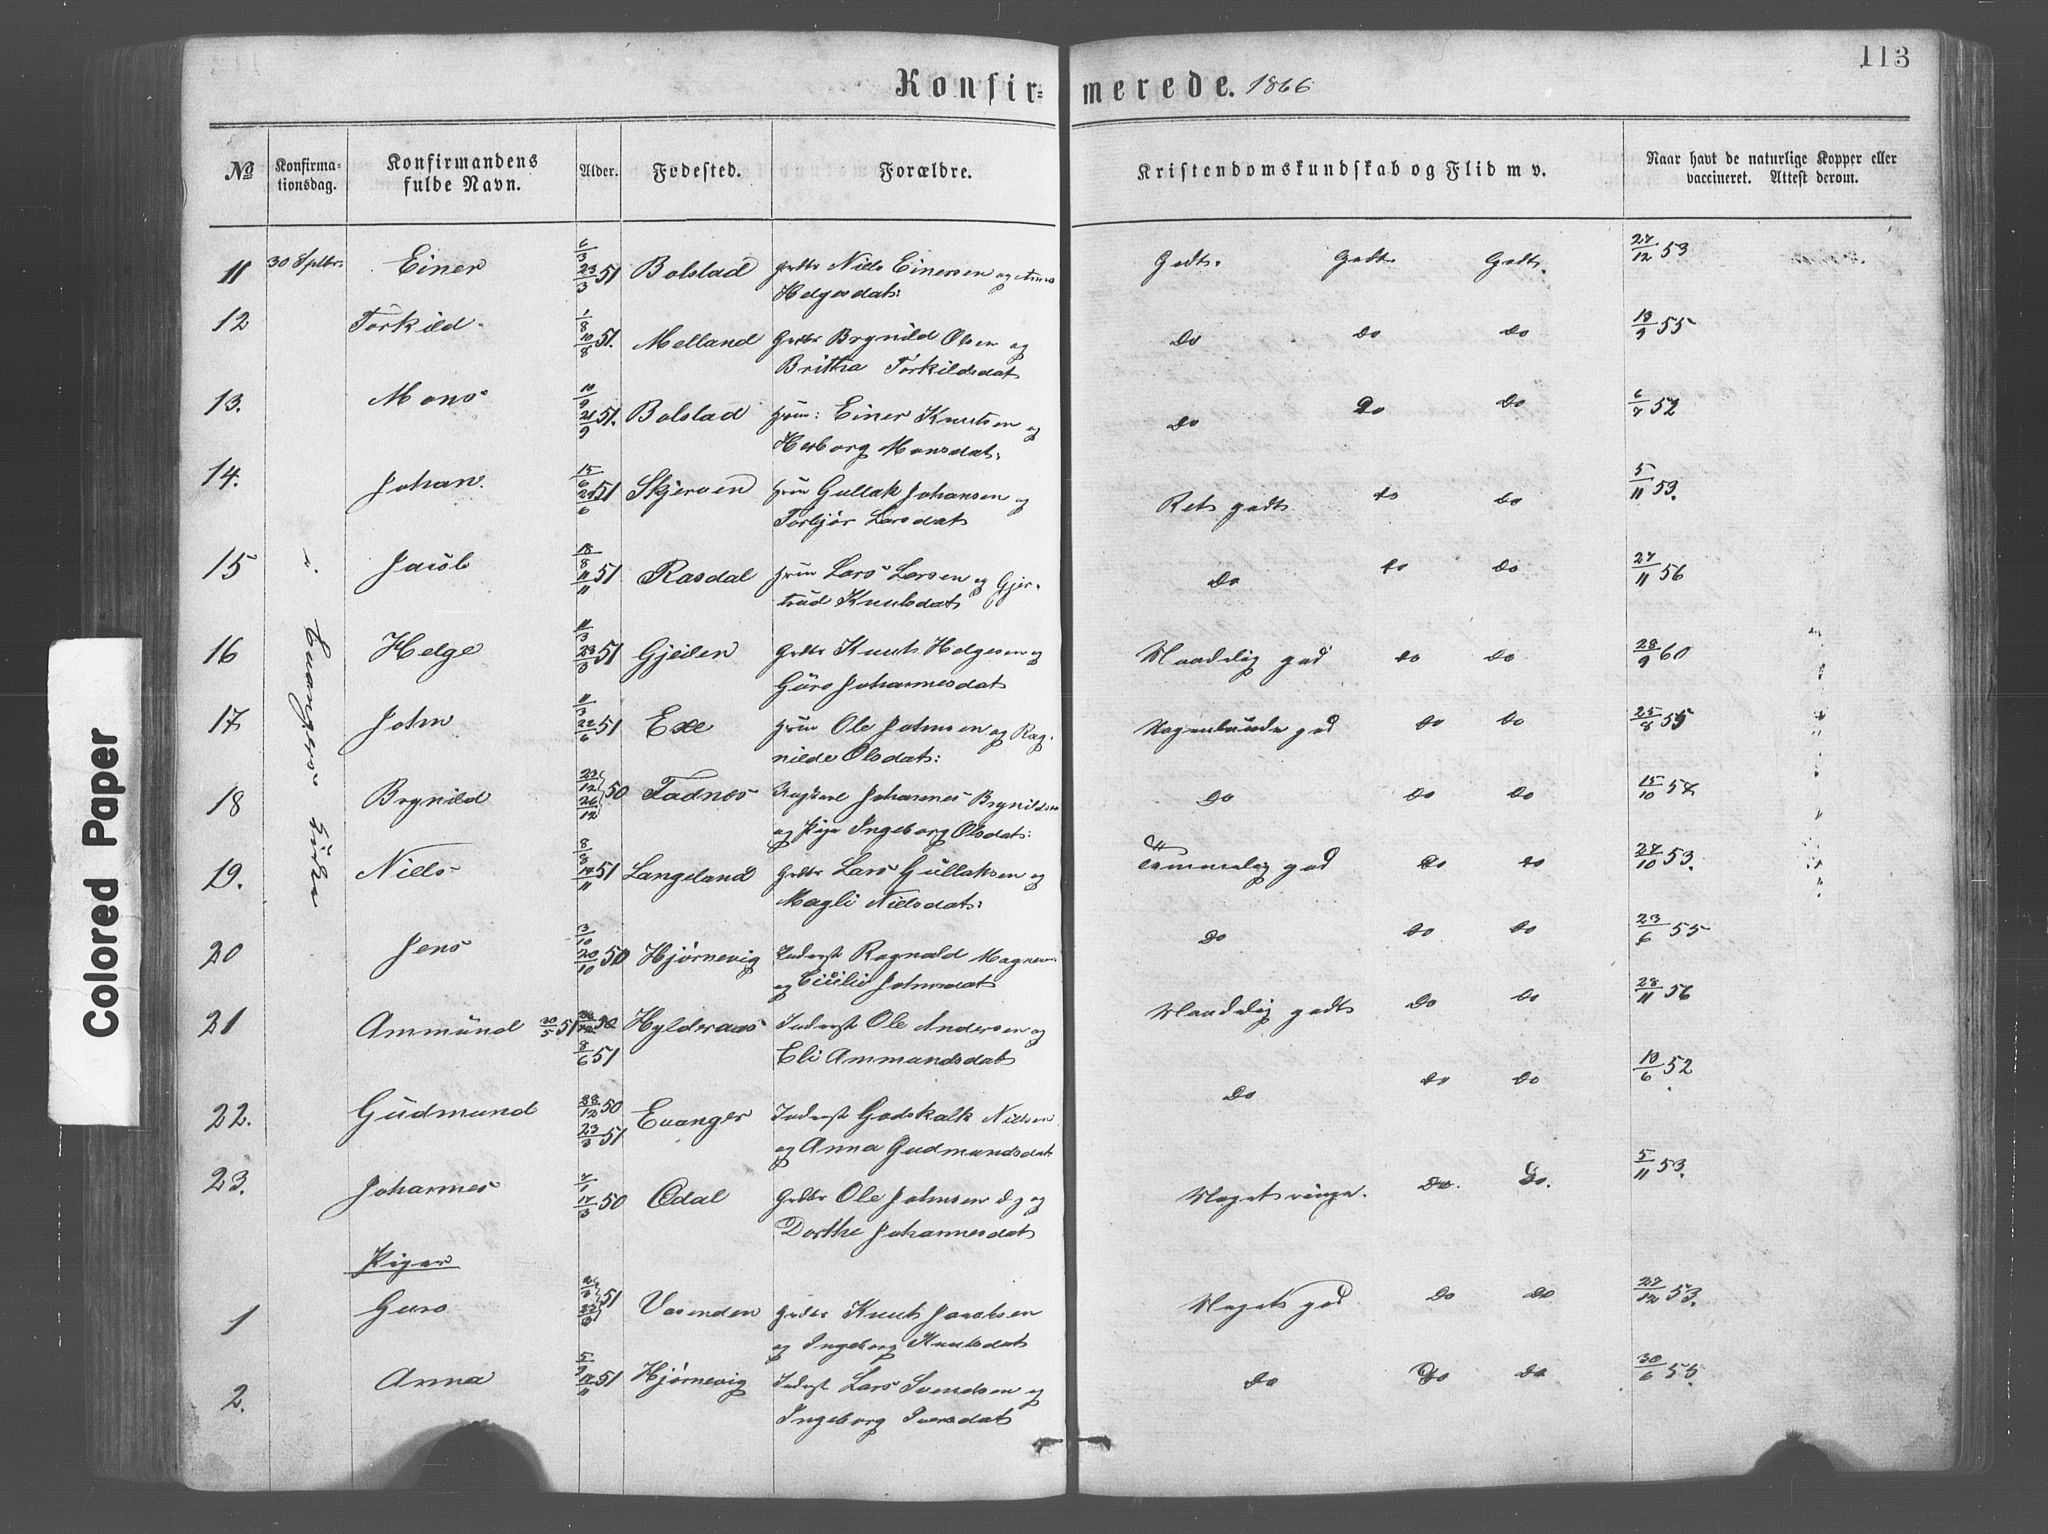 113
Konfir=
merede. 1866
No
Konfirma=
tionsdag.
Konfirmandens
fulde Navn.
Alder.
Fødested.
Forældre.
Kristendomskundskab og Flid m v.
Naar havt de naturlige Kopper eller
vaccineret. Attest derom.
11 30 Septbr. Einer 23/3 51 Bolstad Niels Einersen og Anna
Helgesdat:
Godt. Godt Godt. 27/12 53
12 Torkild 1/8 10/8 51. Melland Brynild Olsen og
Britha Torkildsdat
Do Do Do 55
13. Mons 21/9 51. Bolstad Einer Knutsen og
Herborg Monsdat:
Do Do Do 6/7 52
14. Johan. 15/6 51 Skjerven Gullak Johansen og
Torbjør Larsdat
Ret godt do Do 5/11 53.
15 Jacob 11/11 51 Rasdal Lars Larsen og Gjer-
trud Knutsdat
Do do Do 27/11 56
i Evangers Kirke
16 Helge 51 Gjeilen Knut Helgesen og
Guro Johannesdat
Maadelig god do Do 28/9 60
17 John 22/6 51 Exe Ole Johnsen og Rag-
nilde Olsdat:
Nogenlunde god do Do 25/8 55
18 Brynild 23/12 26/12 50 Fadnes Johannes Brynildsen
og Pige Ingeborg Olsdat:
Do Do Do 15/10 57
19. Niels 51 Langeland Lars Gullaksen og
Magli Nielsdat:
Temmelig god Do do 27/10 53.
20 Jens 3/10 20/10 50 Hjørnevig Inderst Ragnald Magnesen
og Cicilie Johnsdat
Do do do 23/6 55
21 Ammund 30/5 51 Hyldenaes Inderst Ole Andersen og
8/6 51 Eli Ammundsdat
Maadelig godt Do Do 28/11 56
22. Gudmund 50 Evanger Inderst Godskalk Nielsen
51 og Anna Gudmundsdat
Do do Do 52
23. Johannes 50 Ødal Ole Johnsen d. y og
Dorthe Johannesdat
Meget ringe. Do. Do. 5/11 53.
Piger
1 Guro 51 Vasenden Knut Jacobsen
og Ingeborg Knutsdat
Meget god Do Do 27/12 53.
2. Anna 51 Hjørnevig Inderst Lars Svendsen og
Ingeborg Iversdat
Do Do Do 30/6 55.
Colored Paper